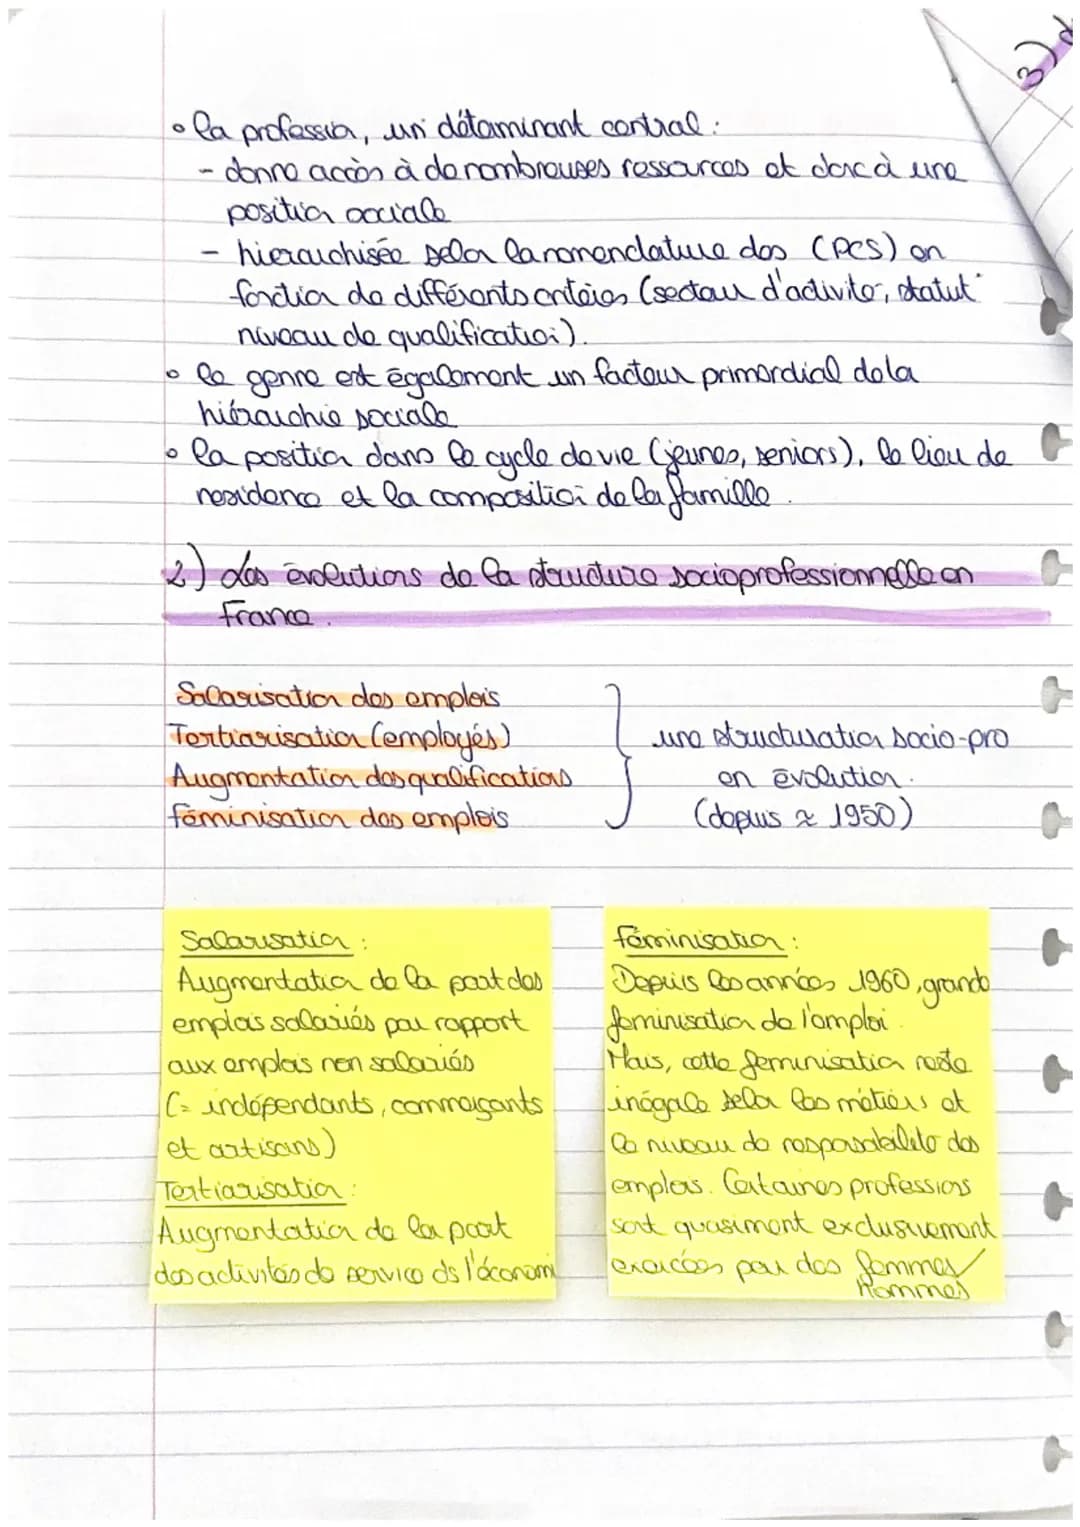 3) d
• la profession, un déterminant central :
- donne accès à de nombreuses ressources et donc à une
position sociale
- hierarchisée selon la nomenclature des (PCS) en
fonction de différents critères (secteur d'activité, statut
niveau de qualification).
• le genre est également un facteur primordial de la
hiérarchie sociale
• la position dans le cycle de vie (jeunes, seniors), le lieu de
residence et la composition de la famille.
2) Les évolutions de la structure socioprofessionnelle en
France.
Salarisation des emplois
Tertiarisation (employés)
Augmentation des qualifications
féminisation des emplois
une structuration socio-pro
en évolution.
(depuis ≈ 1950)
Salarisation :
Augmentation de la part des
emplois salariés par rapport
aux emplois non salariés
(= indépendants, commerçants
et artisans)
Tertiarisation :
Augmentation de la part
des activités de service ds l'économi
féminisation :
Depuis les années 1960, grande
feminisation de l'emploi.
Mais, cette feminisation reste
inégale selon les métiers et
le niveau de responsabilité des
emplois. Certaines professions
sont quasiment exclusivement
exercées par des femmes/
hommes